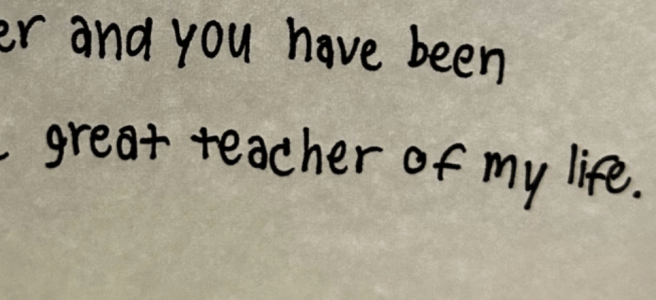 er and you have been
great teacher of my life.